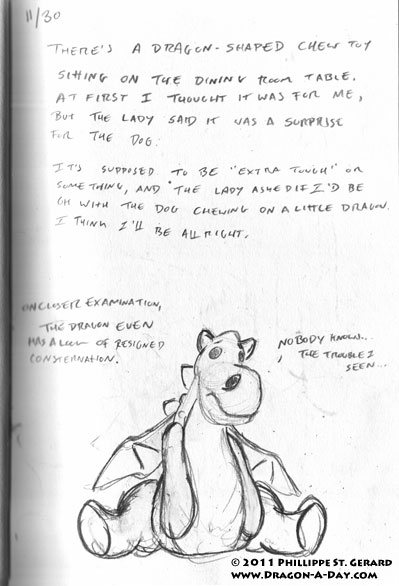 11/30
THERE'S A DRAGON-SHAPED CHEW TOY
SITTING ON THE DINING ROOM TABLE.
AT FIRST I THOUGHT IT WAS FOR ME,
BUT THE LADY SAID IT WAS A SURPRISE
FOR THE DOG.
IT'S SUPPOSED TO BE "EXTRA TOUGH" OR
SOMETHING, AND THE LADY ASKED IF I'D BE
OK WITH THE DOG CHEWING ON A LITTLE DRAGON.
I THINK I'LL BE ALL RIGHT.
ON CLOSER EXAMINATION,
THE DRAGON EVEN
HAS A LOOK OF RESIGNED
CONSTERNATION.
NOBODY KNOWS...
THE TROUBLE I
SEEN...
© 2011 PHILLIPPE ST. GERARD
WWW.DRAGON-A-DAY.COM